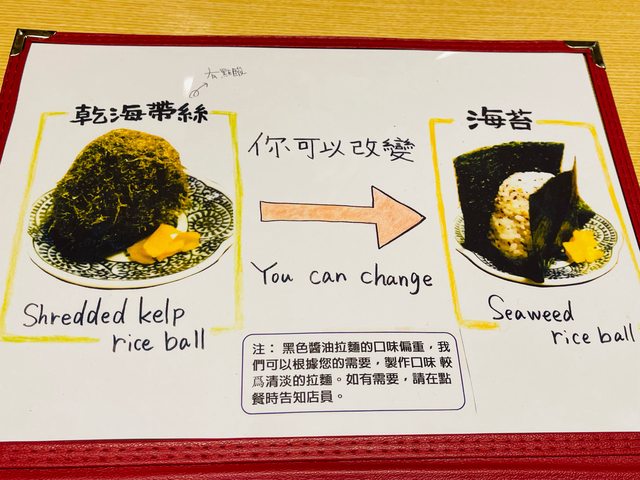 有點酸
乾海帶絲
海苔
你可以改變
You can change
Shredded kelp
rice ball
Seaweed
rice ball
注： 黑色醬油拉麵的口味偏重，我
們可以根據您的需要，製作口味 較
爲清淡的拉麵。如有需要，請在點
餐時告知店員。